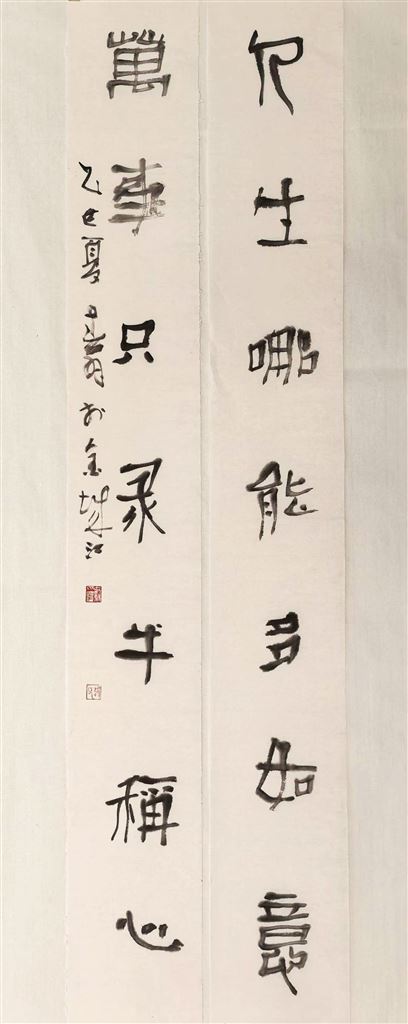 人生哪能多如意
萬事只求半稱心
乙巳夏 翁 於金城江